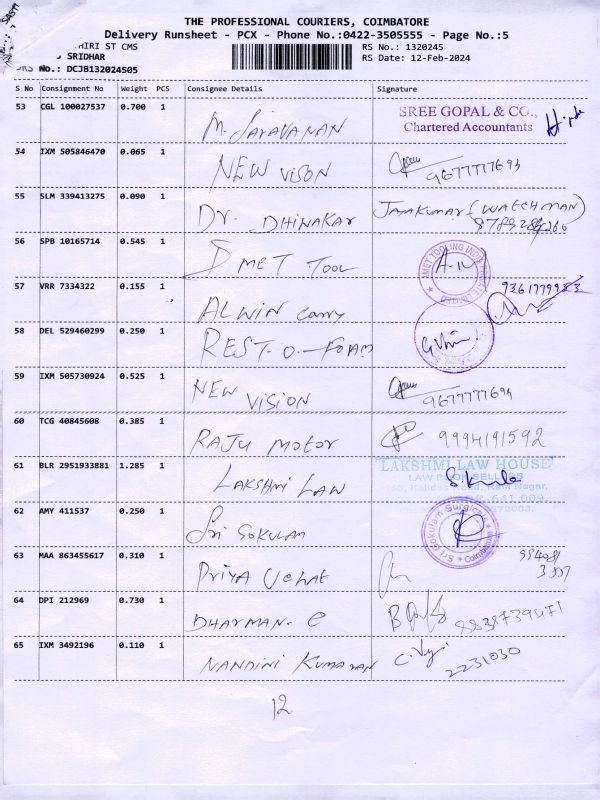 THE PROFESSIONAL COURIERS, COIMBATORE
Delivery Runsheet - PCX - Phone No.:0422-3505555 - Page No.:5
HIRI ST CMS
RS No.: 1320245
SRIDHAR
RS Date: 12-Feb-2024
No.: DCJB132024505
S No Consignment No Weight PCS Consignee Details Signature
53 CGL 100027537 0.700 1 M. SARAVANAN SREE GOPAL & CO.,
Chartered Accountants
54 IXM 505846470 0.065 1 NEW VISON 9677777694
55 SLM 339413275 0.090 1 Dr. DHINAKAR JAYAKUMAR (WATCHMAN)
56 SPB 10165714 0.545 1 SMET TOOL
57 VRR 7334322 0.155 1 ALWIN Carry
58 DEL 529460299 0.250 1 REST-O-FOAM
59 IXM 505730924 0.525 1 NEW VISION 9677777694
60 TCG 40845608 0.385 1 RAJU MOTOR 9994191592
61 BLR 2951933881 1.285 1 LAKSHMI LAW LAKSHMI LAW HOUSE
LAW BOOK SELLERS
62 AMY 411537 0.250 1 Sri GOKULAM Sri Gokulam Surgicals Coimbatore
63 MAA 863455617 0.310 1 PRIYA
64 DPI 212969 0.730 1 DHARMAN. C 9838739471
65 IXM 3492196 0.110 1 NANDINI KUMARAN 2231030
12